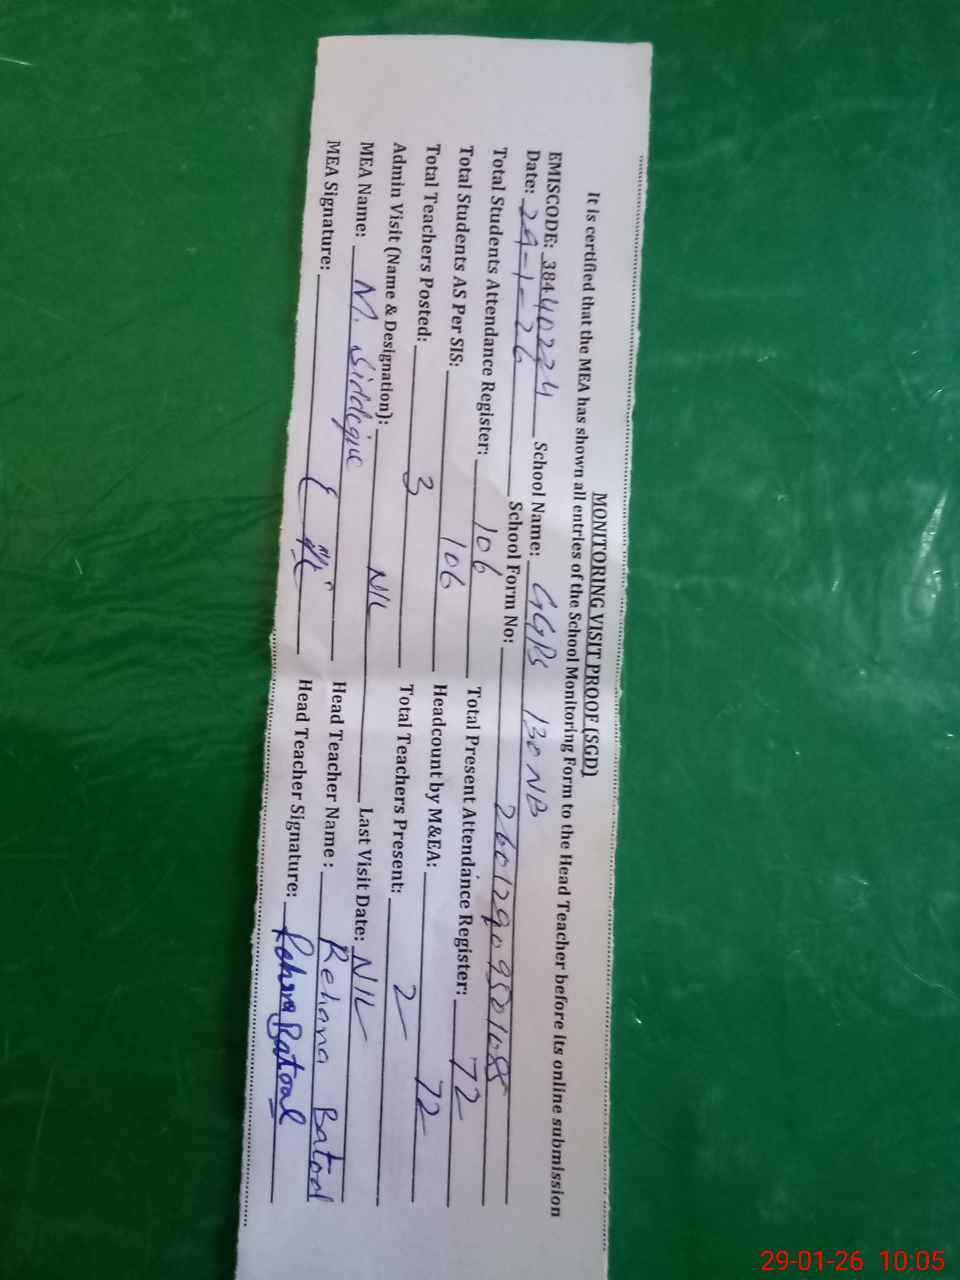 MONITORING VISIT PROOF (SGD)
It is certified that the MEA has shown all entries of the School Monitoring Form to the Head Teacher before its online submission
EMISCODE: 38440224 School Name: GGPS 130 NB
Date: 29-1-26 School Form No:
Total Students Attendance Register: 106 Total Present Attendance Register: 72
Total Students AS Per SIS: 106 Headcount by M&EA: 72
Total Teachers Posted: 3 Total Teachers Present: 2
Admin Visit (Name & Designation): NIL Last Visit Date: NIL
MEA Name: M. Siddique Head Teacher Name : Rehana Batool
MEA Signature: Head Teacher Signature: Rehana Batool
29-01-26 10:05